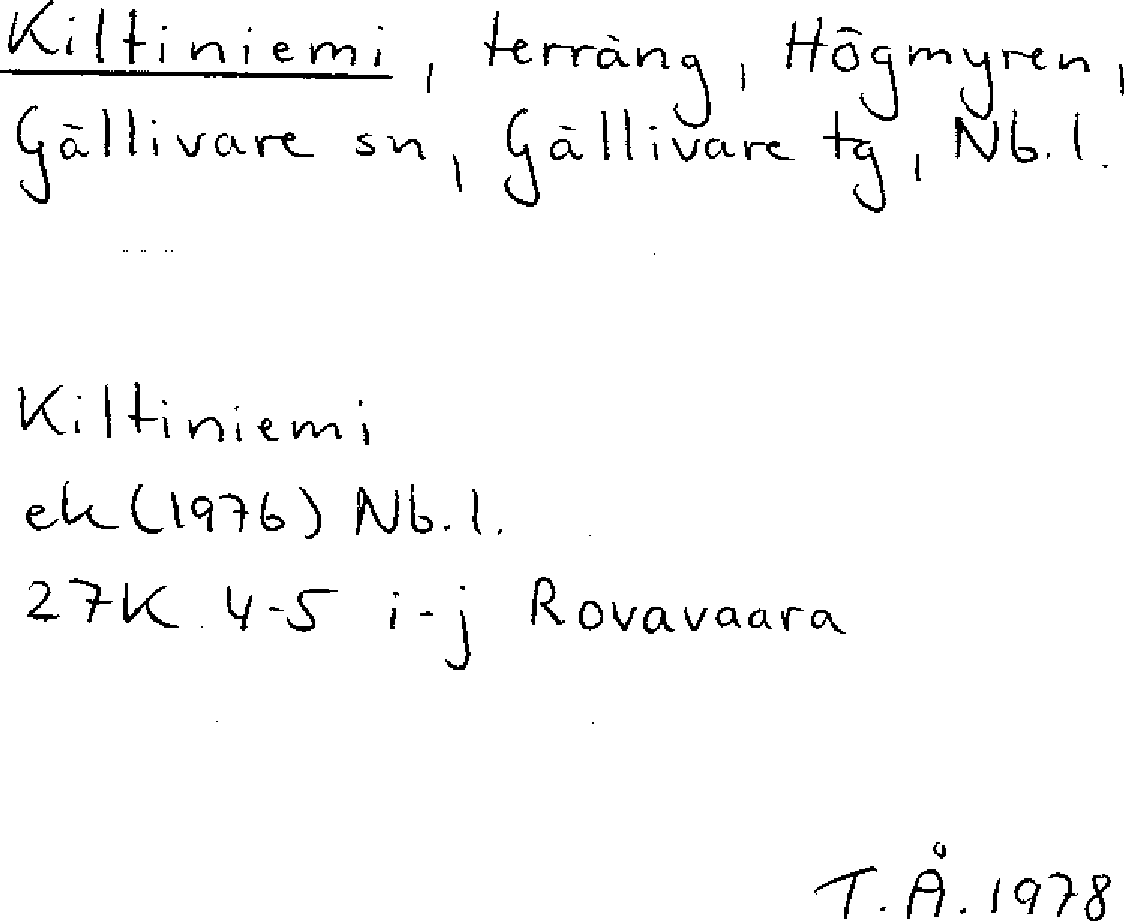 Kiltiniemi, terräng, Högmyren,
Gällivare sn, Gällivare tg, Nb.l.
Kiltiniemi
ek (1976) Nb.l.
27K 4-5 i-j Rovavaara
T.Å. 1978